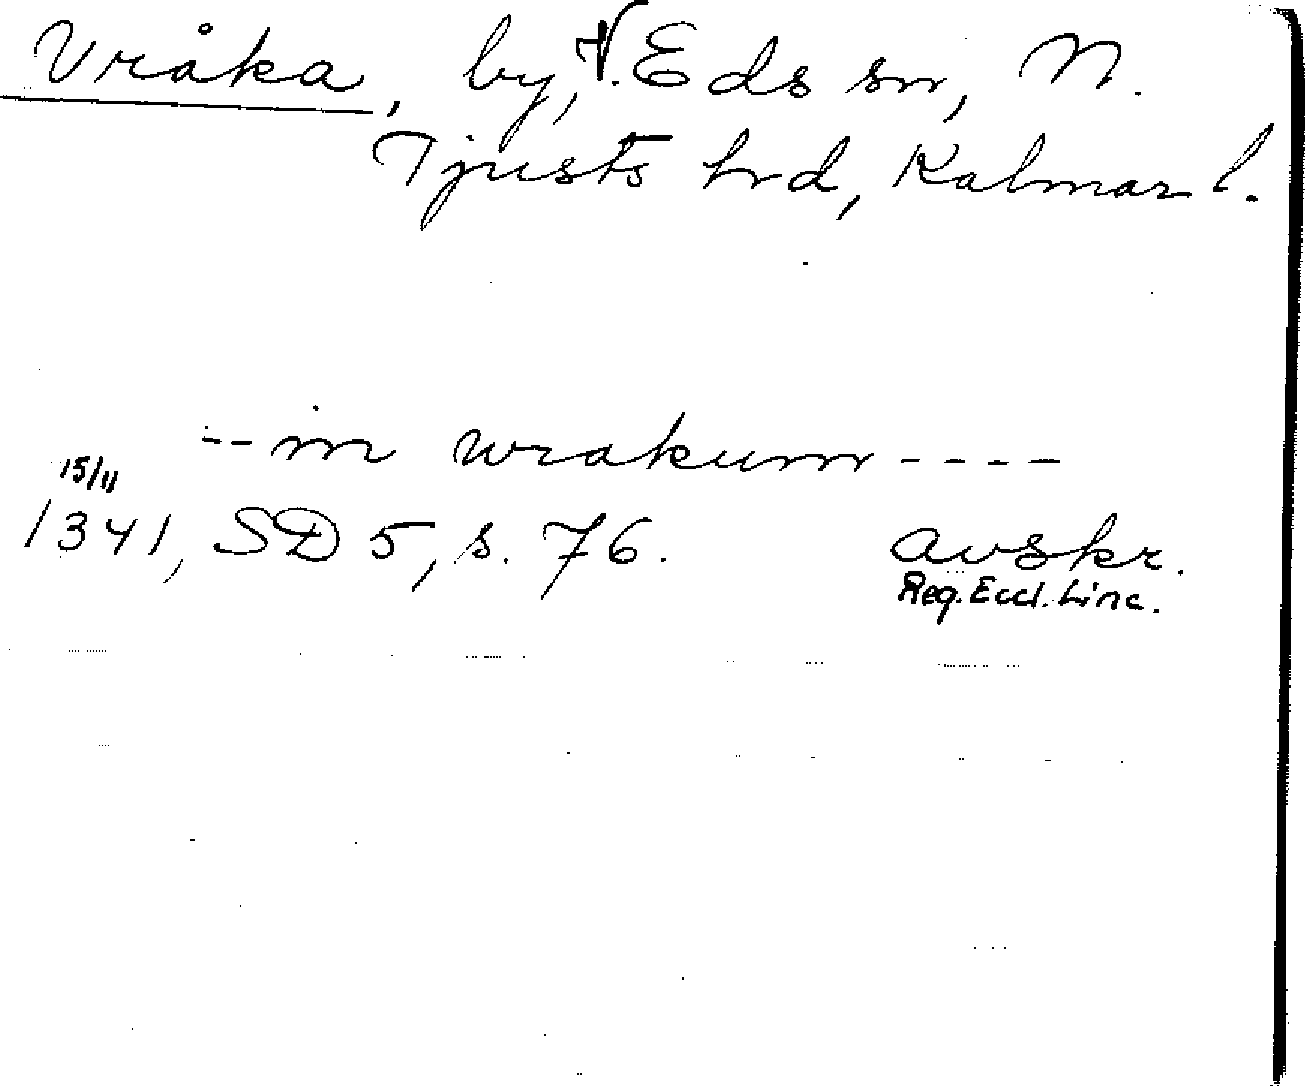 Vråka, by, V. Eds sn, N.
Tjusts hrd, Kalmar l.
-- in wrakum ----
15/11
1341, SD 5, s. 76. avskr.
Reg. Eccl. Linc.